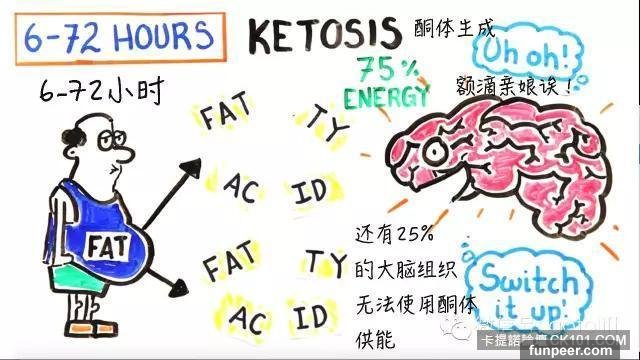 6-72 HOURS KETOSIS 酮体生成
Uh oh!
6-72小时
75%
ENERGY
额滴亲娘诶！
FAT TY
AC ID
FAT
还有25%
的大脑组织
无法使用酮体
供能
FAT TY
AC ID
Switch
it up!
卡提諾論壇CK101.COM
funpeer.com